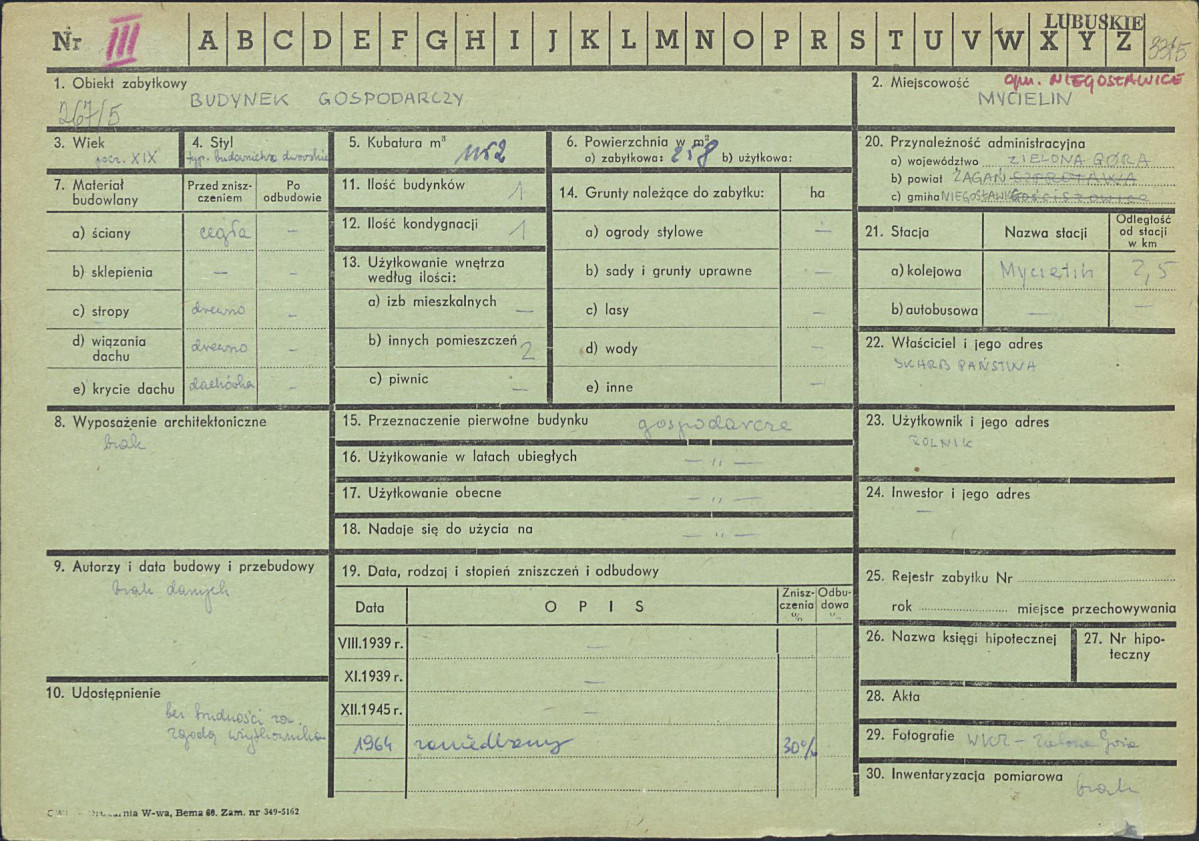 Nr III A B C D E F G H I J K L M N O P R S T U V W X Y Z
LUBUSKIE
3315
1. Obiekt zabytkowy
267/5
BUDYNEK GOSPODARCZY
2. Miejscowość gm. NIEGOSŁAWICE
MYCIELIN
3. Wiek
pocz. XIX
4. Styl
typ. budownictwa dworskie
5. Kubatura m³
1152
6. Powierzchnia w m²
a) zabytkowa: 258 b) użytkowa:
20. Przynależność administracyjna
a) województwo ZIELONA GÓRA
b) powiat ŻAGAŃ SZPROTAWA
c) gmina NIEGOSŁAWICE GOŚCISZOWICE
7. Materiał budowlany
Przed znisz-
czeniem
Po
odbudowie
a) ściany cegła –
b) sklepienia – –
c) stropy drewno –
d) wiązania
dachu drewno –
e) krycie dachu dachówka –
11. Ilość budynków 1
12. Ilość kondygnacji 1
13. Użytkowanie wnętrza
według ilości:
a) izb mieszkalnych –
b) innych pomieszczeń 2
c) piwnic –
14. Grunty należące do zabytku: ha
a) ogrody stylowe –
b) sady i grunty uprawne –
c) lasy –
d) wody –
e) inne –
21. Stacja Nazwa stacji
Odległość
od stacji
w km
a) kolejowa Mycielin 2,5
b) autobusowa – –
22. Właściciel i jego adres
SKARB PAŃSTWA
8. Wyposażenie architektoniczne
brak
15. Przeznaczenie pierwotne budynku gospodarcze
16. Użytkowanie w latach ubiegłych – " –
17. Użytkowanie obecne – " –
18. Nadaje się do użycia na – " –
23. Użytkownik i jego adres
ROLNIK
24. Inwestor i jego adres
–
9. Autorzy i data budowy i przebudowy
brak danych
19. Data, rodzaj i stopień zniszczeń i odbudowy
Data OPIS
Znisz-
czenia
%
Odbu-
dowa
%
VIII.1939 r. –
XI.1939 r. –
XII.1945 r. –
1964 zaniedbany 30%
25. Rejestr zabytku Nr
rok miejsce przechowywania
26. Nazwa księgi hipotecznej
27. Nr hipo-
teczny
10. Udostępnienie
bez trudności za
zgodą użytkownika
28. Akta
29. Fotografie WKZ – Zielona Góra
30. Inwentaryzacja pomiarowa
brak
W-wa, Bema 60. Zam. nr 349-5162